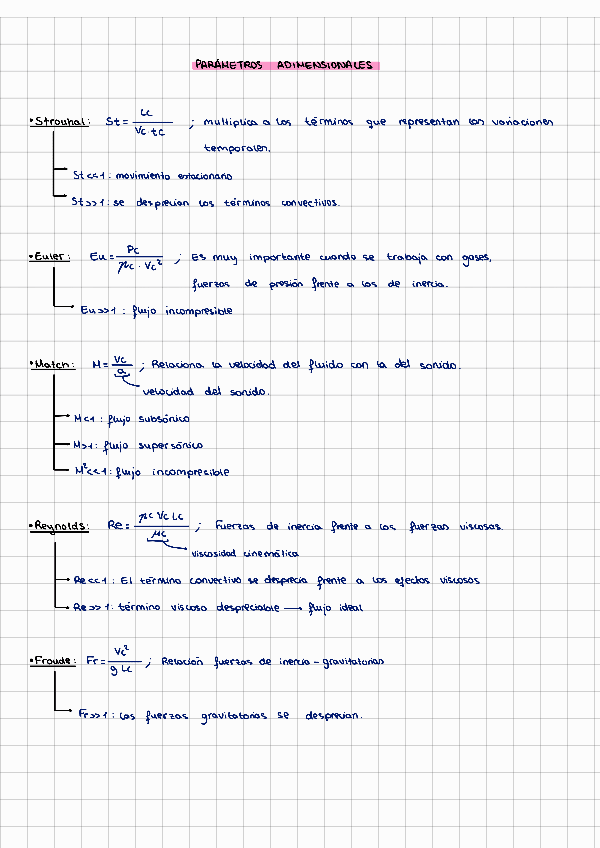 PARÁMETROS ADIMENSIONALES
• Strouhal: St = Lc / Vc tc ; multiplica a los términos que representan las variaciones
temporales.
St<<1: movimiento estacionario
St>>1: se desprecian los términos convectivos.
• Euler: Eu = Pc / ρc · Vc² ; Es muy importante cuando se trabaja con gases,
fuerzas de presión frente a las de inercia.
Eu>>1: flujo incompresible
• Match: M = Vc / a ; Relaciona la velocidad del fluido con la del sonido.
velocidad del sonido.
M<1: flujo subsónico
M>1: flujo supersónico
M²<<1: flujo incompresible
• Reynolds: Re = ρc Vc Lc / μc ; Fuerzas de inercia frente a las fuerzas viscosas.
viscosidad cinemática
Re<<1: El término convectivo se desprecia frente a los efectos viscosos
Re>>1: término viscoso despreciable → flujo ideal
• Froude: Fr = Vc² / g Lc ; Relación fuerzas de inercia - gravitatorias
Fr>>1: Las fuerzas gravitatorias se desprecian.